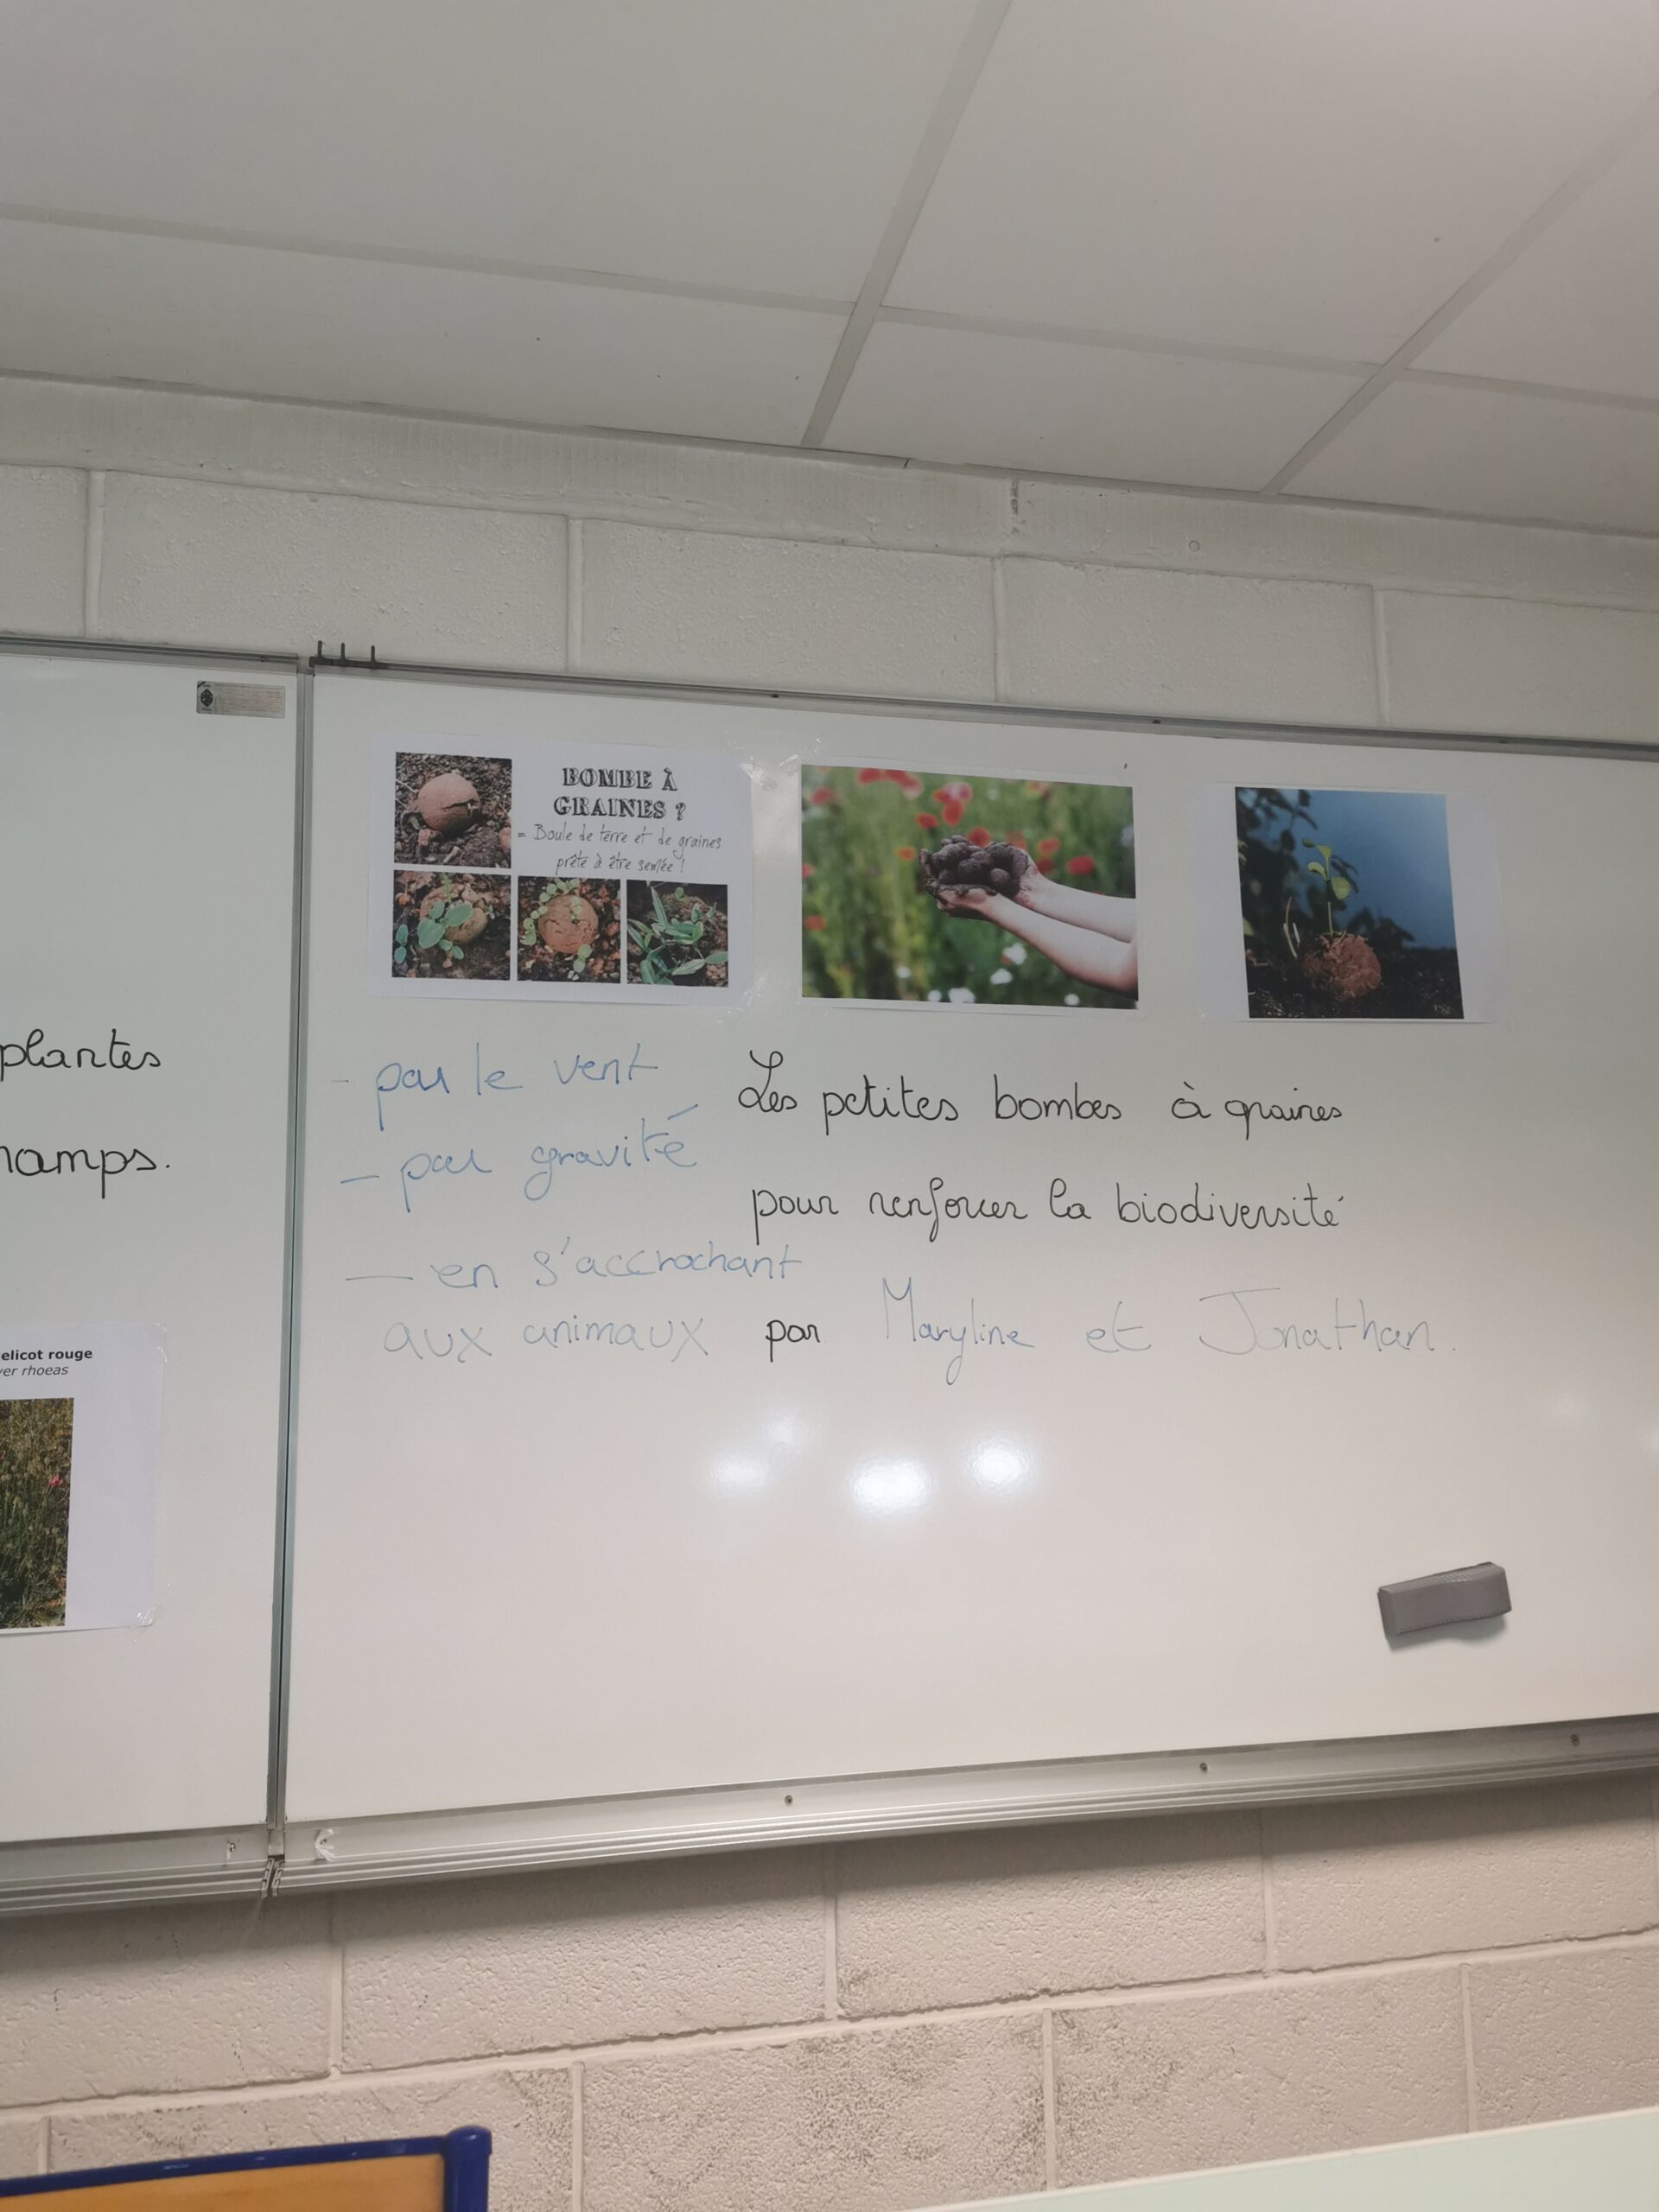 BOMBE À
GRAINES ?
= Boule de terre et de graines
prête à être semée !
plantes
hamps.
elicot rouge
ver rhoeas
- par le vent
- par gravité
- en s'accrochant
aux animaux
Les petites bombes à graines
pour renforcer la biodiversité
par Maryline et Jonathan.